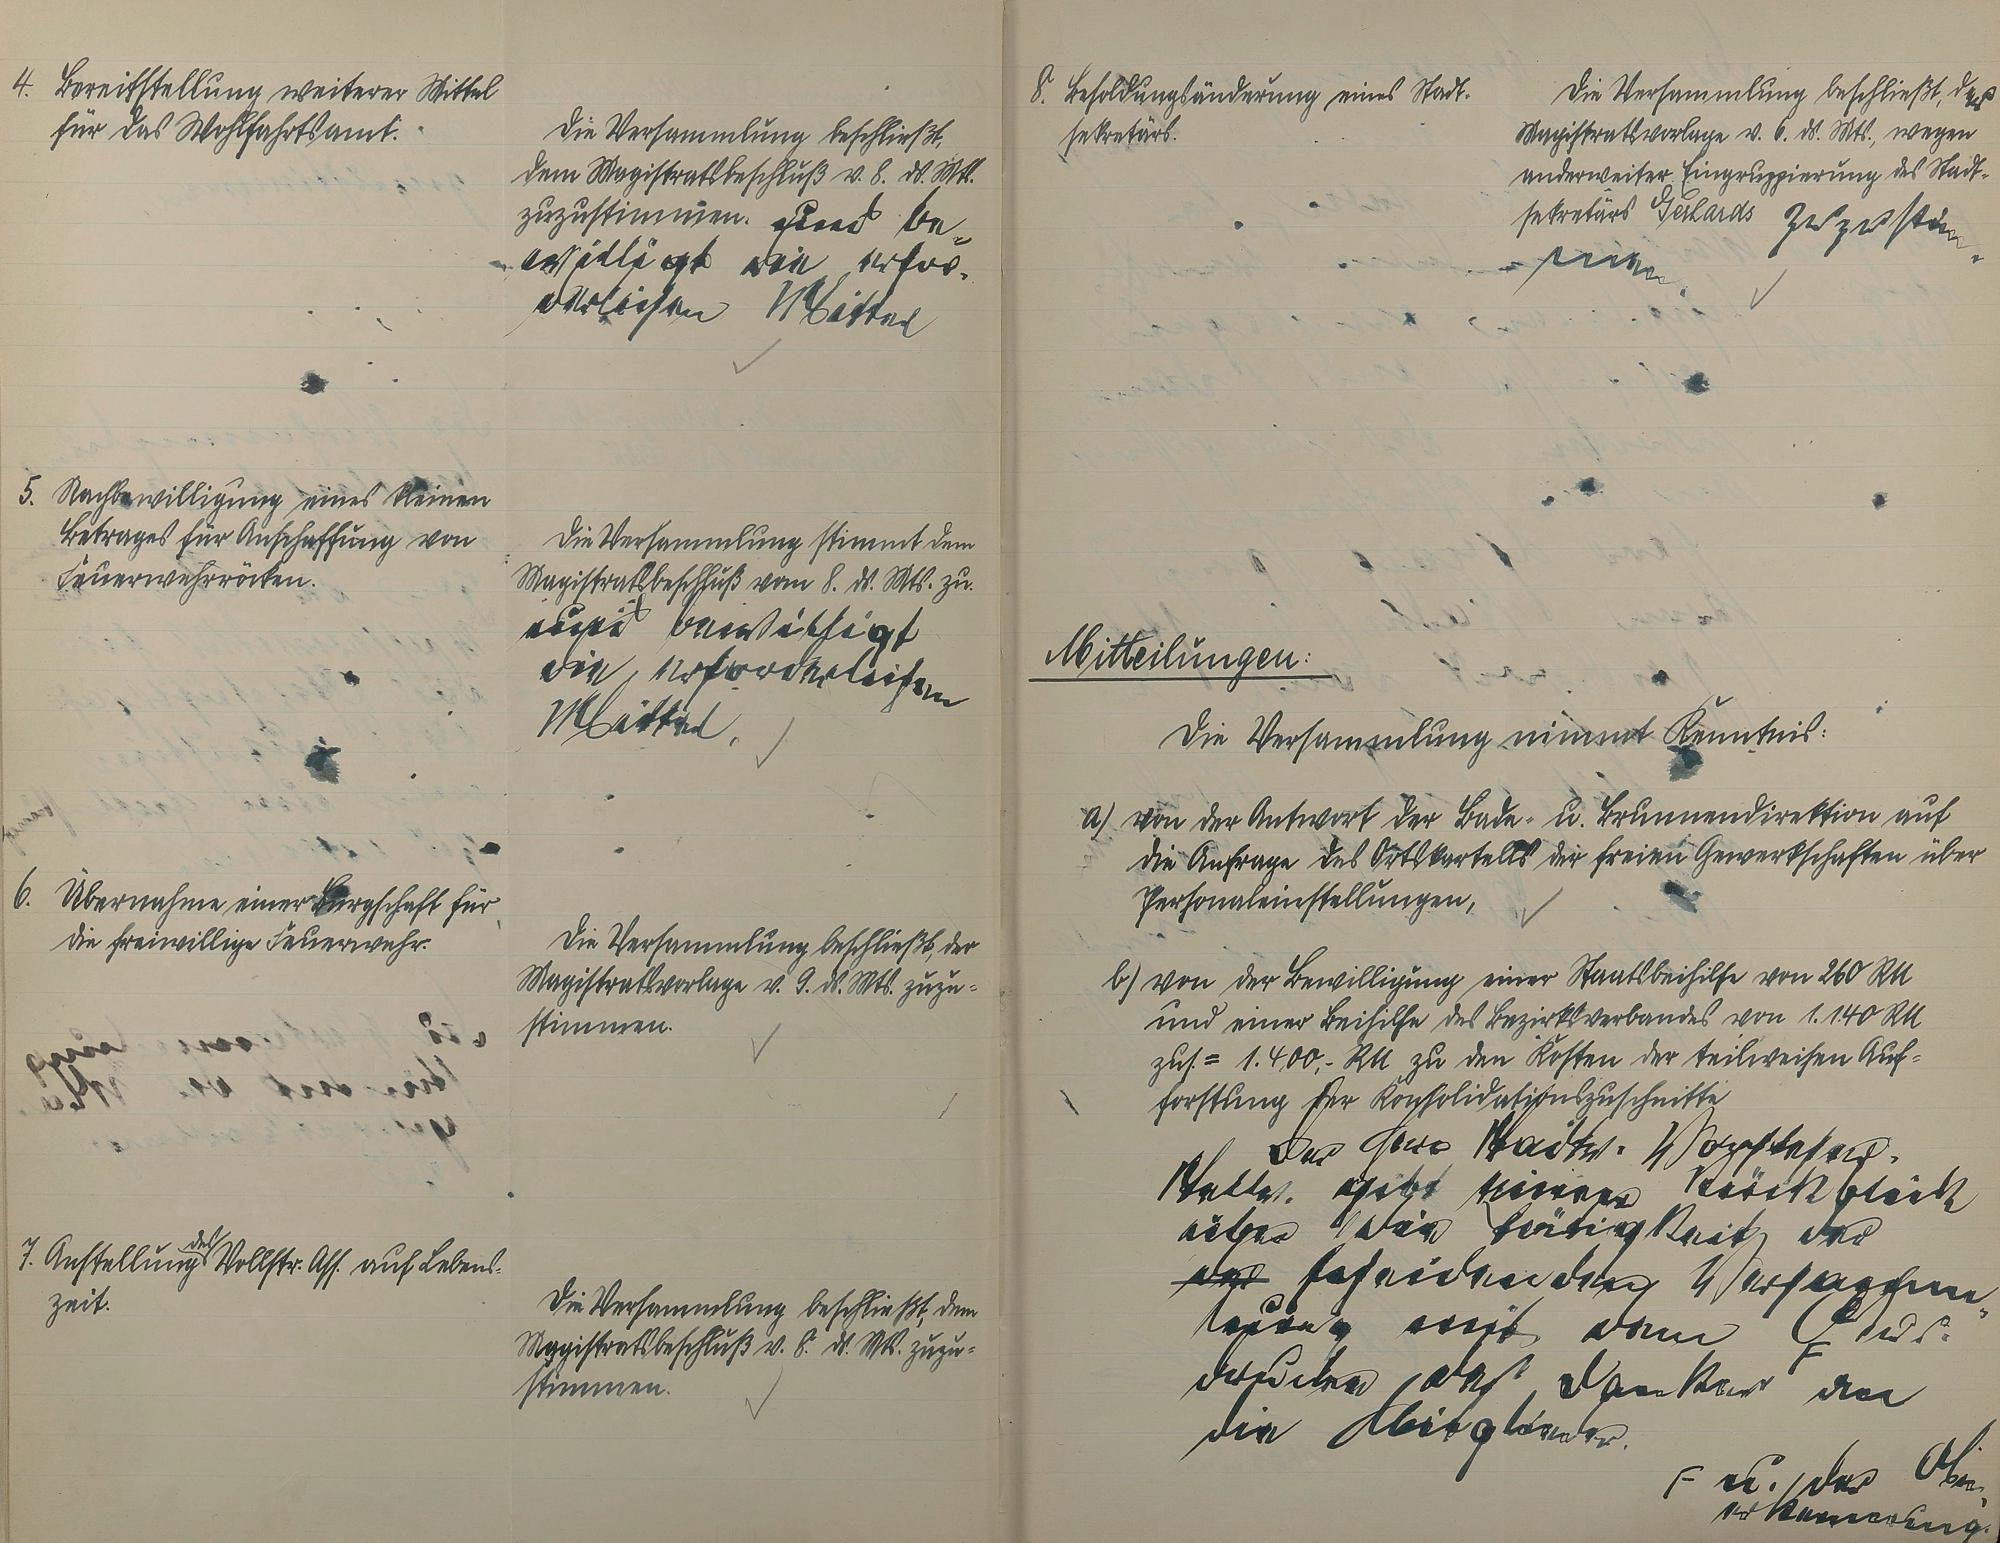 4. Bereitstellung weiterer Mittel
für das Wohlfahrtsamt.
Die Versammlung beschließt,
dem Magistratsbeschluß v. 8. ds. Mts.
zuzustimmen. und be-
willigt die erfor-
derlichen Mittel
5. Nachbewilligung eines kleinen
Betrages für Anschaffung von
Feuerwehrröcken.
Die Versammlung stimmt dem
Magistratsbeschluß vom 8. ds. Mts. zu.
und bewilligt
die erforderlichen
Mittel.
6. Übernahme einer Bürgschaft für
die freiwillige Feuerwehr.
Die Versammlung beschließt, der
Magistratsvorlage v. 9. ds. Mts. zuzu-
stimmen.
7. Anstellung des Vollstr. Ass. auf Lebens-
zeit.
Die Versammlung beschließt, dem
Magistratsbeschluß v. 8. ds. Mts. zuzu-
stimmen.
8. Besoldungsänderung eines Stadt-
sekretärs.
Die Versammlung beschließt, der
Magistratsvorlage v. 6. ds. Mts., wegen
anderweiter Eingruppierung des Stadt-
sekretärs Gerhards zuzustim-
men.
Mitteilungen:
Die Versammlung nimmt Kenntnis:
a) von der Antwort der Bade- u. Brunnendirektion auf
die Anfrage des Ortskartells der freien Gewerkschaften über
Personaleinstellungen,
b) von der Bewilligung einer Staatsbeihilfe von 260 RM
und einer Beihilfe des Bezirksverbandes von 1.140 RM
zus. = 1.400,- RM zu den Kosten der teilweisen Auf-
forstung der Konsolidationszuschnitte
Der Herr Stadtv. Vorsteher-
Stellv. gibt einen Rückblick
über die Tätigkeit der
der scheidenden Versamm-
lung mit dem Aus-
drucke des Dankes an
die Mitglieder.
F u. der An-
erkennung.